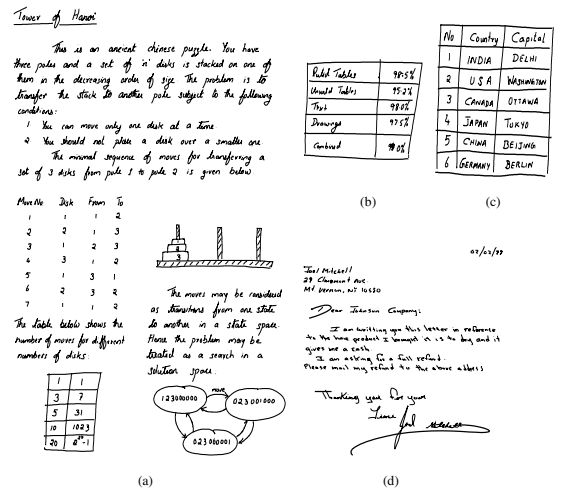 Tower of Hanoi
This is an ancient chinese puzzle. You have
three poles and a set of 'n' disks is stacked on one of
them in the decreasing order of size. The problem is to
transfer the stack to another pole subject to the following
conditions:
1 You can move only one disk at a time
2 You should not place a disk over a smaller one.
The minimal sequence of moves for transferring a
set of 3 disks from pole 1 to pole 2 is given below.
Move No Disk From To
1 1 1 2
2 2 1 3
3 1 2 3
4 3 1 2
5 1 3 1
6 2 3 2
7 1 1 2
The table below shows the
number of moves for different
numbers of disks.
1 1
3 7
5 31
10 1023
20 2²⁰-1
1
2
3
The moves may be considered
as transitions from one state
to another in a state space.
Hence the problem may be
treated as a search in a
solution space.
move
123000000
023001000
023000001
(a)
Ruled Tables 98.5%
Unruled Tables 95.2%
Text 98.0%
Drawings 97.5%
Combined
(b)
No Country Capital
1 INDIA DELHI
2 USA WASHINGTON
3 CANADA OTTAWA
4 JAPAN TOKYO
5 CHINA BEIJING
6 GERMANY BERLIN
(c)
Joel Mitchell
29 Claremont Ave.
Mt. Vernon, NJ 10550
Dear Johnson Company:
I am writting you this letter in reference
to the product I bought
gives me a rash.
I am asking for a full refund.
Please mail my refund to the above address
Thanking you for your
Time
Joel Mitchell
(d)